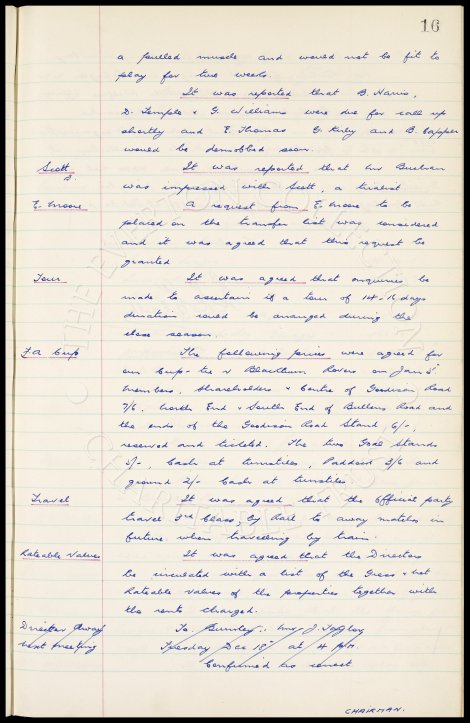 16
a pulled muscle and would not be fit to
play for two weeks.
It was reported that B. Harris,
D. Temple & G. Williams were due for call up
shortly and E. Thomas G. Kirby and B. Capper
would be demobbed soon.
Scott It was reported that Mr Buchan
was impressed with Scott, a trialist
E. Moore A request from E. Moore to be
placed on the transfer list was considered
and it was agreed that this request be
granted
Tour It was agreed that enquiries be
made to ascertain if a tour of 14-16 days
duration could be arranged during the
close season.
F.A Cup The following prices were agreed for
our Cup-tie v Blackburn Rovers on Jan 5th
Members, Shareholders & Centre of Goodison Road
7/6, North End & South End of Bullens Road and
the ends of the Goodison Road Stand 6/-,
reserved and ticketed. The two Goal Stands
5/-, Cash at turnstiles, Paddock 3/6 and
ground 2/- Cash at turnstiles.
Travel It was agreed that the Official party
travel 3rd Class, by Rail to away matches in
future when travelling by train.
Rateable Values It was agreed that the Directors
be circulated with a list of the Gross & net
Rateable Values of the properties together with
the rents charged.
Director Away To Burnley: Mr J. Taylor
Next meeting Tuesday Dec 18th at 4 P.M.
Confirmed as correct
CHAIRMAN.